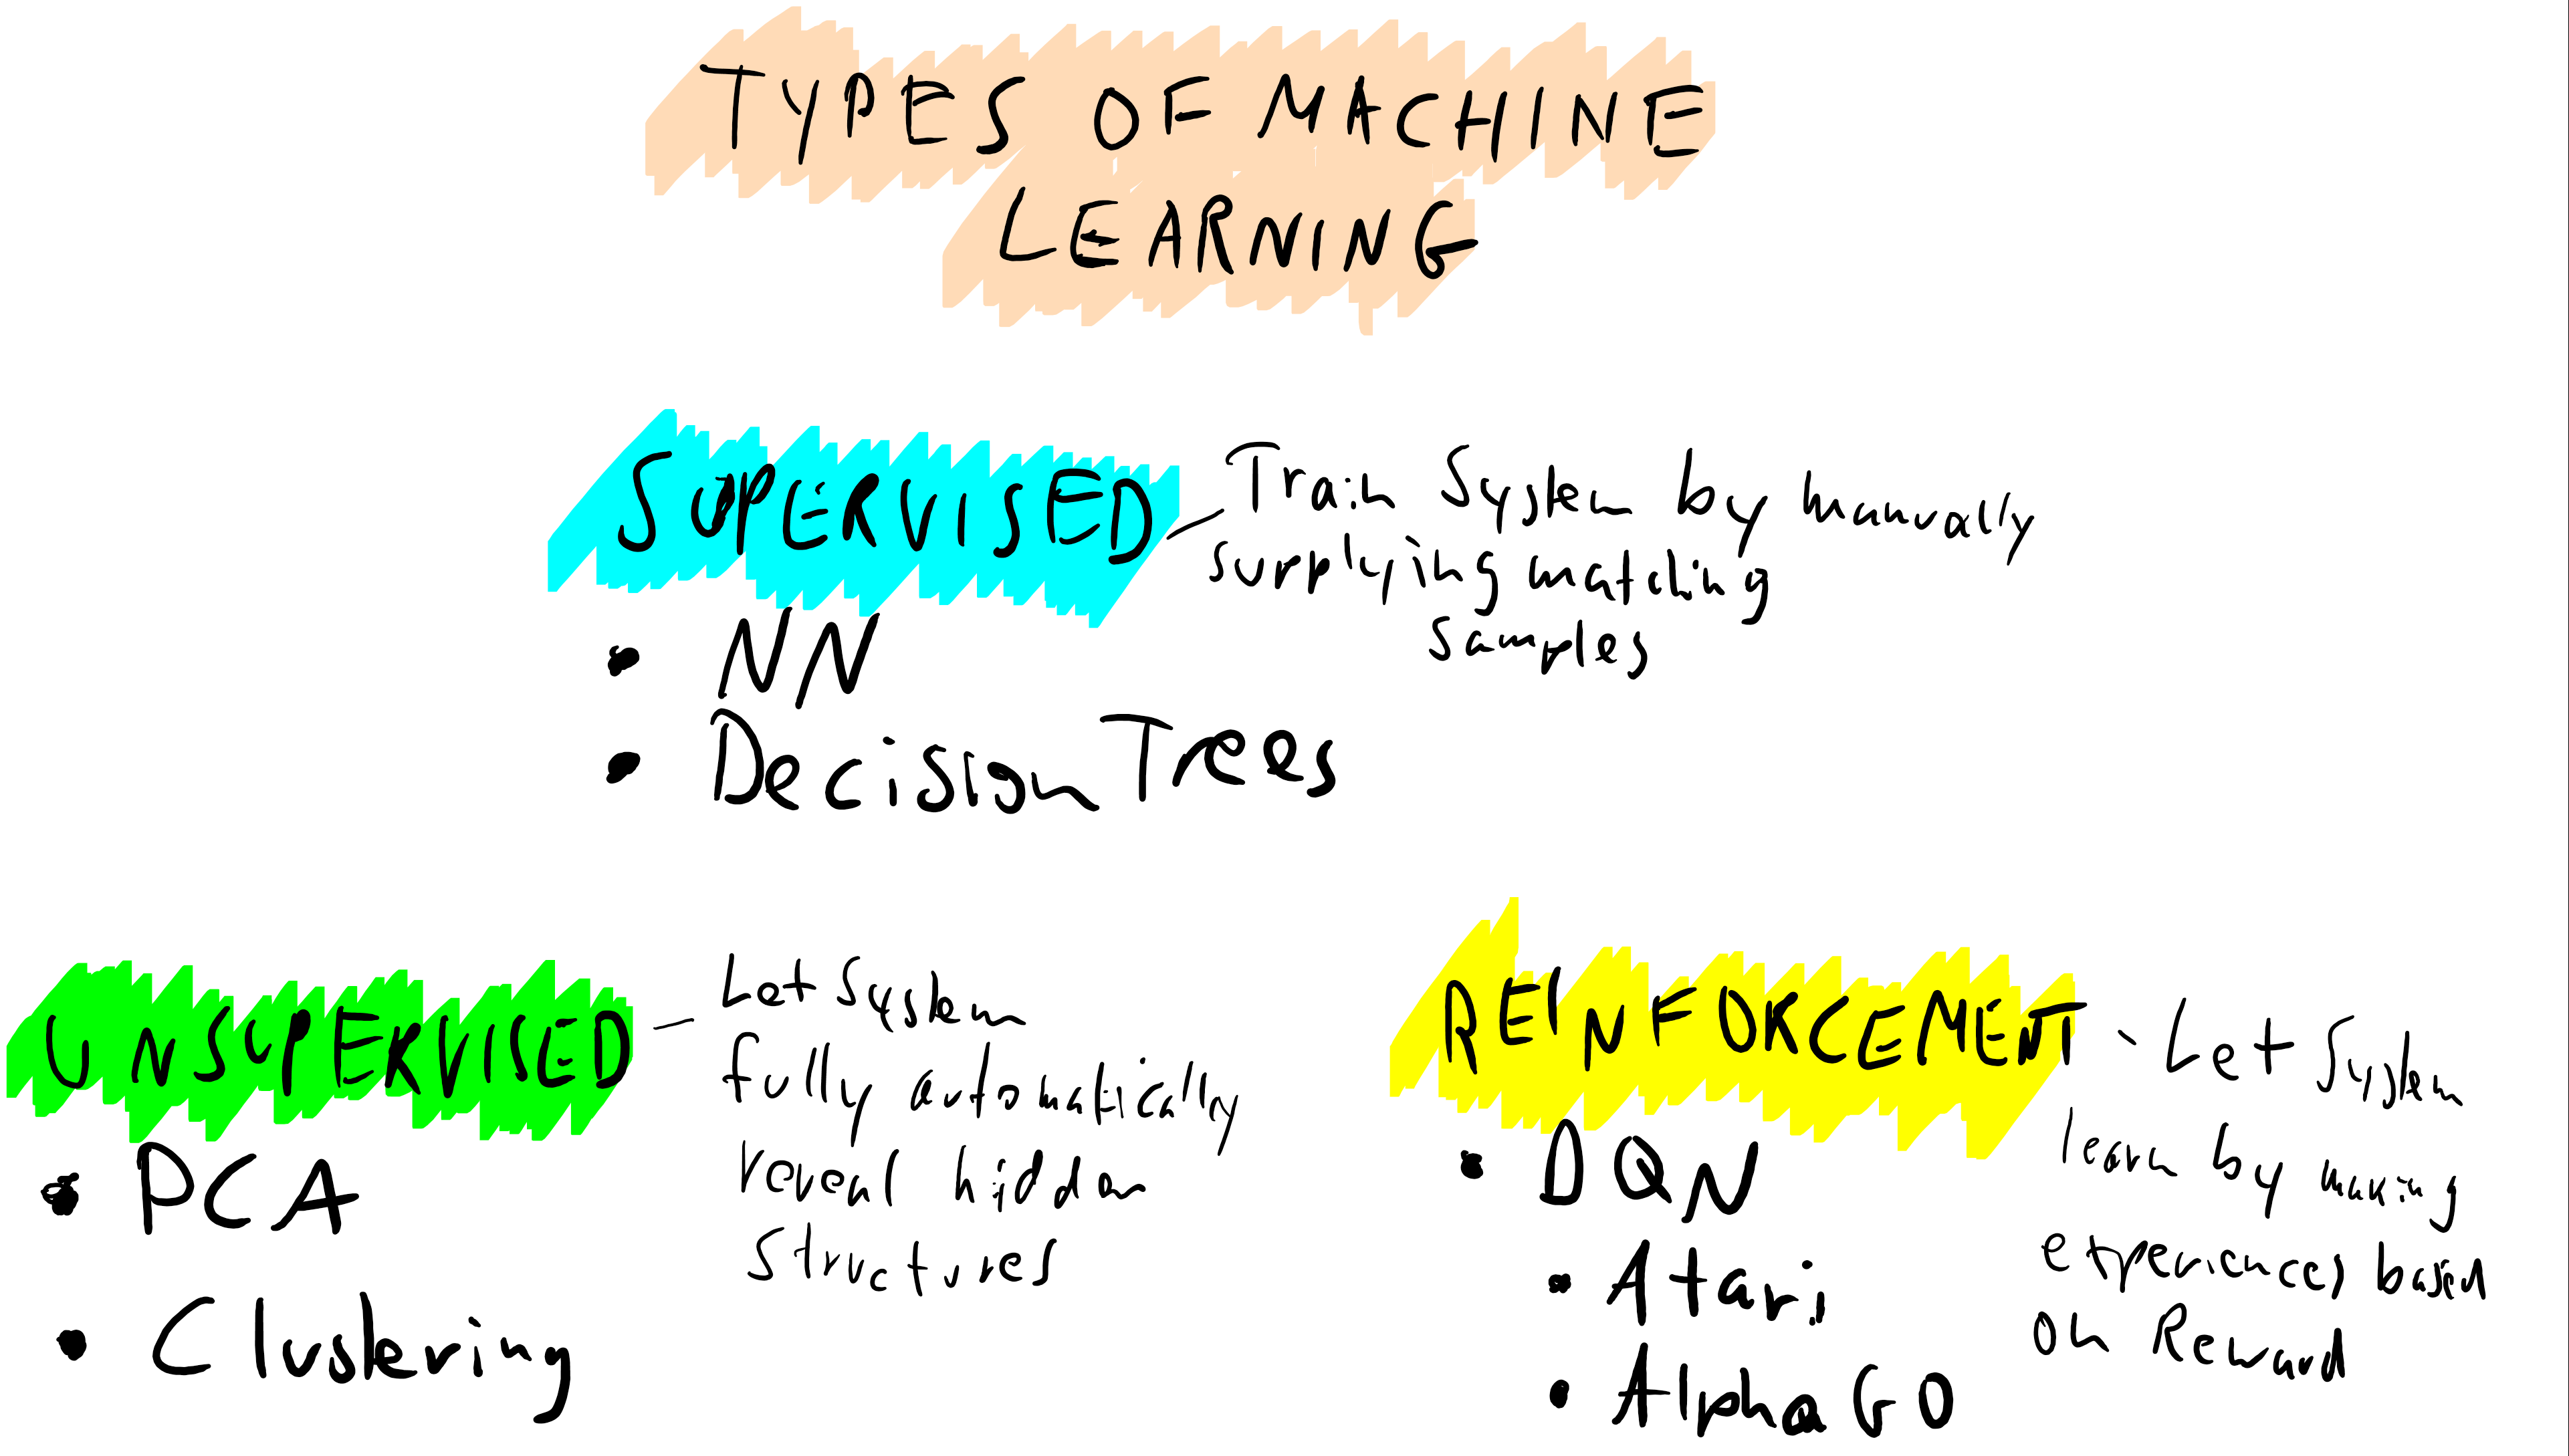 TYPES OF MACHINE
LEARNING
SUPERVISED - Train System by manually
supplying matching
samples
• NN
• Decision Trees
UNSUPERVISED - Let System
fully automatically
reveal hidden
structures
• PCA
• Clustering
REINFORCEMENT - Let System
learn by making
experiences based
on Reward
• DQN
• Atari
• AlphaGO